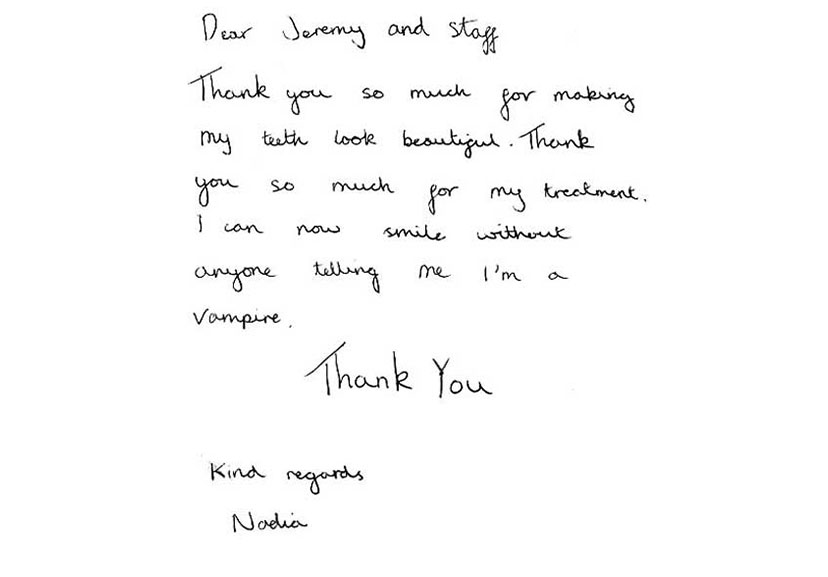 Dear Jeremy and staff
Thank you so much for making
my teeth look beautiful. Thank
you so much for my treatment.
I can now smile without
anyone telling me I'm a
Vampire.
Thank You
Kind regards
Nadia